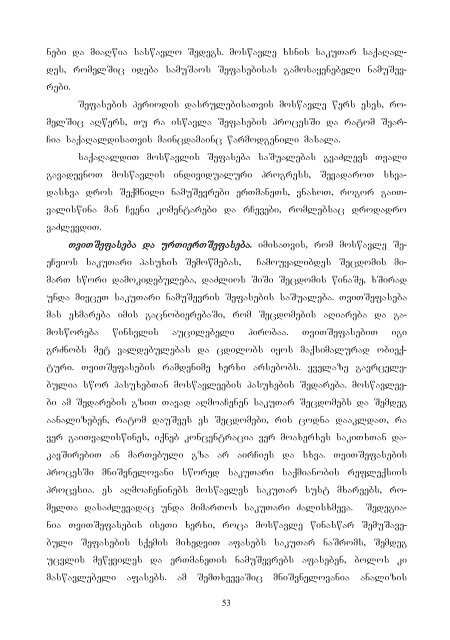 ნები და მიაღწია სასწავლო შედეგს. მოსწავლე ხსნის საკუთარ საქაღალ-
დეს, რომელშიც იდება სამუშაოს შეფასებისას გამოსაყენებელი ნამუშევ-
რები.
შეფასების პერიოდის დასრულებისათვის მოსწავლე წერს ესეს, რო-
მელშიც აღწერს, თუ რა ისწავლა შეფასების პროცესში და რატომ შეარ-
ჩია საქაღალდისათვის მაინცდამაინც წარმოდგენილი მასალა.
საქაღალდით მოსწავლის შეფასება საშუალებას გვაძლევს თვალი
გავადევნოთ მოსწავლის ინდივიდუალური პროგრესს, შევადაროთ სხვა-
დასხვა დროს შექმნილი ნამუშევრები ერთმანეთს, ვნახოთ, როგორ გაით-
ვალისწინა მან ჩვენი კომენტარები და რჩევები, რომლებსაც დროდადრო
ვაძლევდით.
თვითშეფასება და ურთიერთშეფასება. იმისათვის, რომ მოსწავლე შე-
ეჩვიოს საკუთარი პასუხის შემოწმებას, ჩამოუყალიბდეს შეცდომის მი-
მართ სწორი დამოკიდებულება, დაძლიოს შიში შეცდომის წინაშე, ხშირად
უნდა მივცეთ საკუთარი ნამუშევრის შეფასების საშუალება. თვითშეფასება
მას ეხმარება იმის გაცნობიერებაში, რომ შეცდომების აღიარება და გა-
მოსწორება წინსვლის აუცილებელი პირობაა. თვითშეფასებით იგი
გრძნობს მეტ ვალდებულებას და ცდილობს იყოს მაქსიმალურად ობიექ-
ტური. თვითშეფასების რამდენიმე ხერხი არსებობს. ყველაზე გავრცელე-
ბულია სწორ პასუხებთან მოსწავლეების პასუხების შედარება. მოსწავლეე-
ბი ამ შედარების გზით თავად აღმოაჩენენ საკუთარ შეცდომებს და შემდეგ
აანალიზებენ, რატომ დაუშვეს ეს შეცდომები, რის ცოდნა დააკლდათ, რა
ვერ გაითვალისწინეს, იქნებ კონცენტრაცია ვერ მოახერხეს საკითხთან და-
კავშირებით ან მართებული გზა არ აირჩიეს და სხვა. თვითშეფასების
პროცესში მნიშვნელოვანი სწორედ საკუთარი საქმიანობის რეფლექსიის
პროცესია. ეს აღმოაჩენინებს მოსწავლეს საკუთარ სუსტ მხარეებს, რო-
მელთა დასაძლევადაც უნდა მიმართოს საკუთარი ძალისხმევა. შედეგია-
ნია თვითშეფასების ისეთი ხერხი, როცა მოსწავლე წინასწარ შემუშავე-
ბული შეფასების სქემის მიხედვით აფასებს საკუთარ ნაშრომს, შემდეგ
უცვლის მეწყვილეს და ერთმანეთის ნამუშევრებს აფასებენ, ბოლოს კი
მასწავლებელი აფასებს. ამ შემთხვევაშიც მნიშვნელოვანია ანალიზის
53